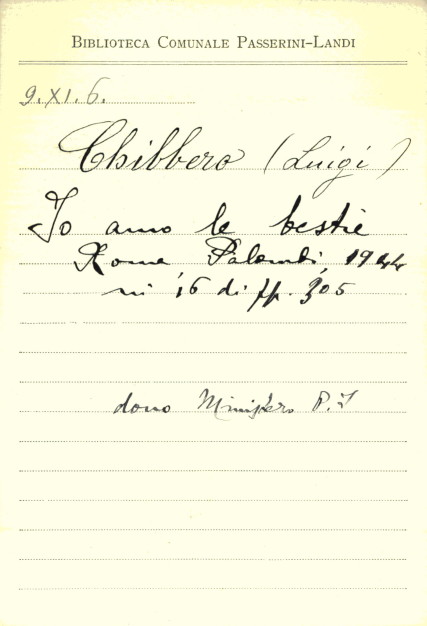 BIBLIOTECA COMUNALE PASSERINI-LANDI
9.XI.6.
Chibbero (Luigi)
Io amo le bestie
Roma Palombi, 1944
in 16 di pp. 305
dono Ministero P. I